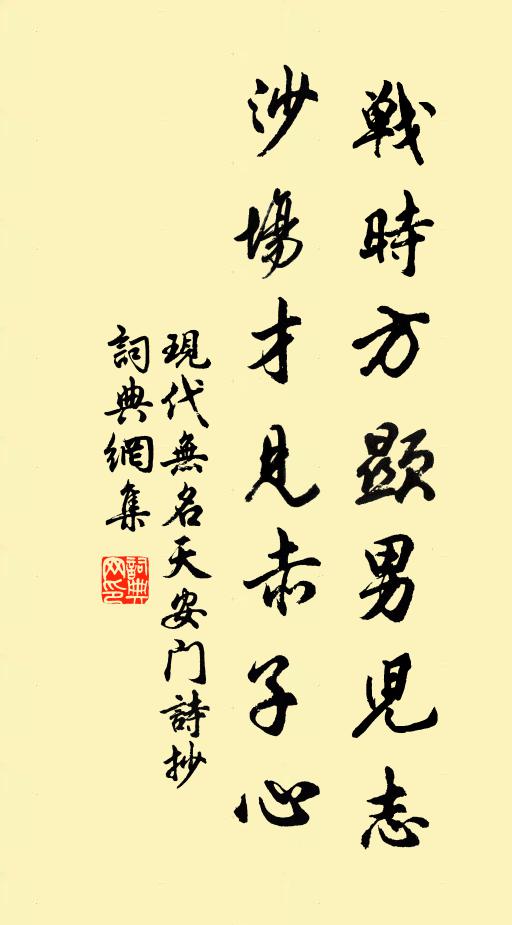 戰時方顯男兒志
沙場才見赤子心
現代無名天安门詩抄
詞典網集
詞典
网印